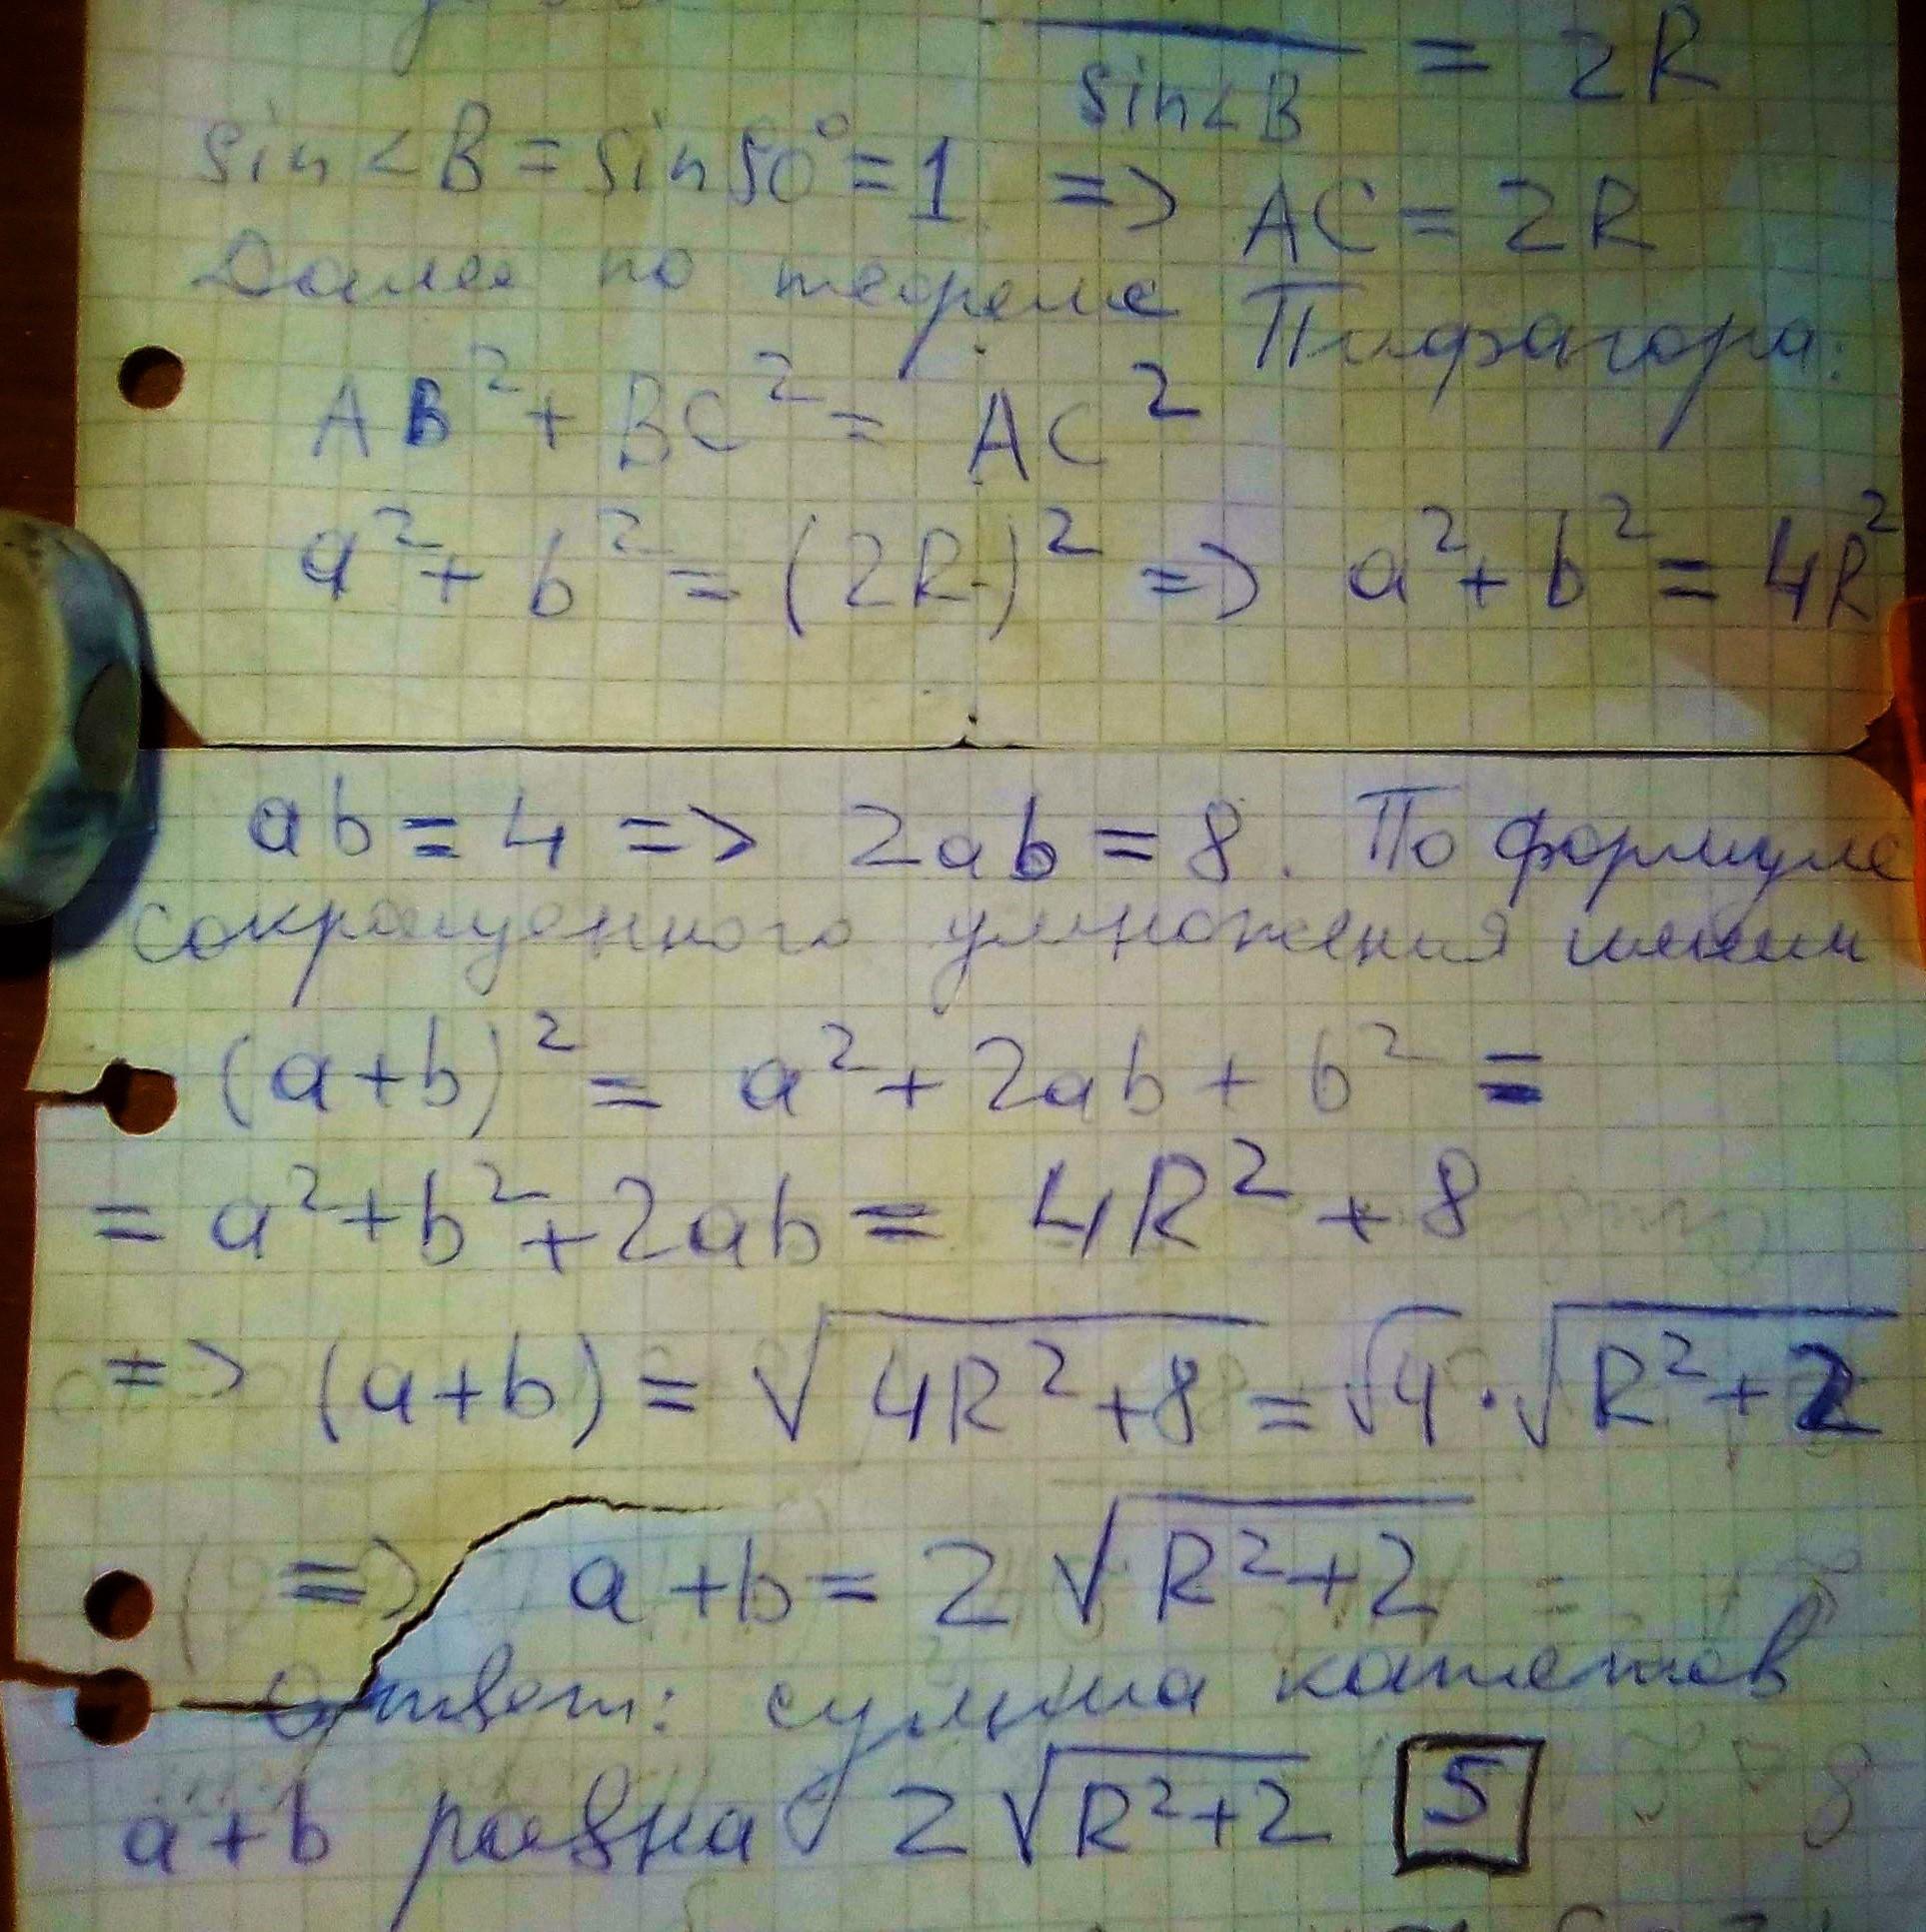 sin<B = 2R
sin<B = sin90° = 1 => AC = 2R
Далее по теореме Пифагора:
AB² + BC² = AC²
a² + b² = (2R)² => a² + b² = 4R²
ab = 4 => 2ab = 8. По формуле
сокращенного умножения имеем
(a+b)² = a² + 2ab + b² =
= a² + b² + 2ab = 4R² + 8
=> (a+b) = √4R²+8 = √4 · √R²+2
=> a+b = 2√R²+2
Ответ: сумма катетов
a+b равна 2√R²+2 5